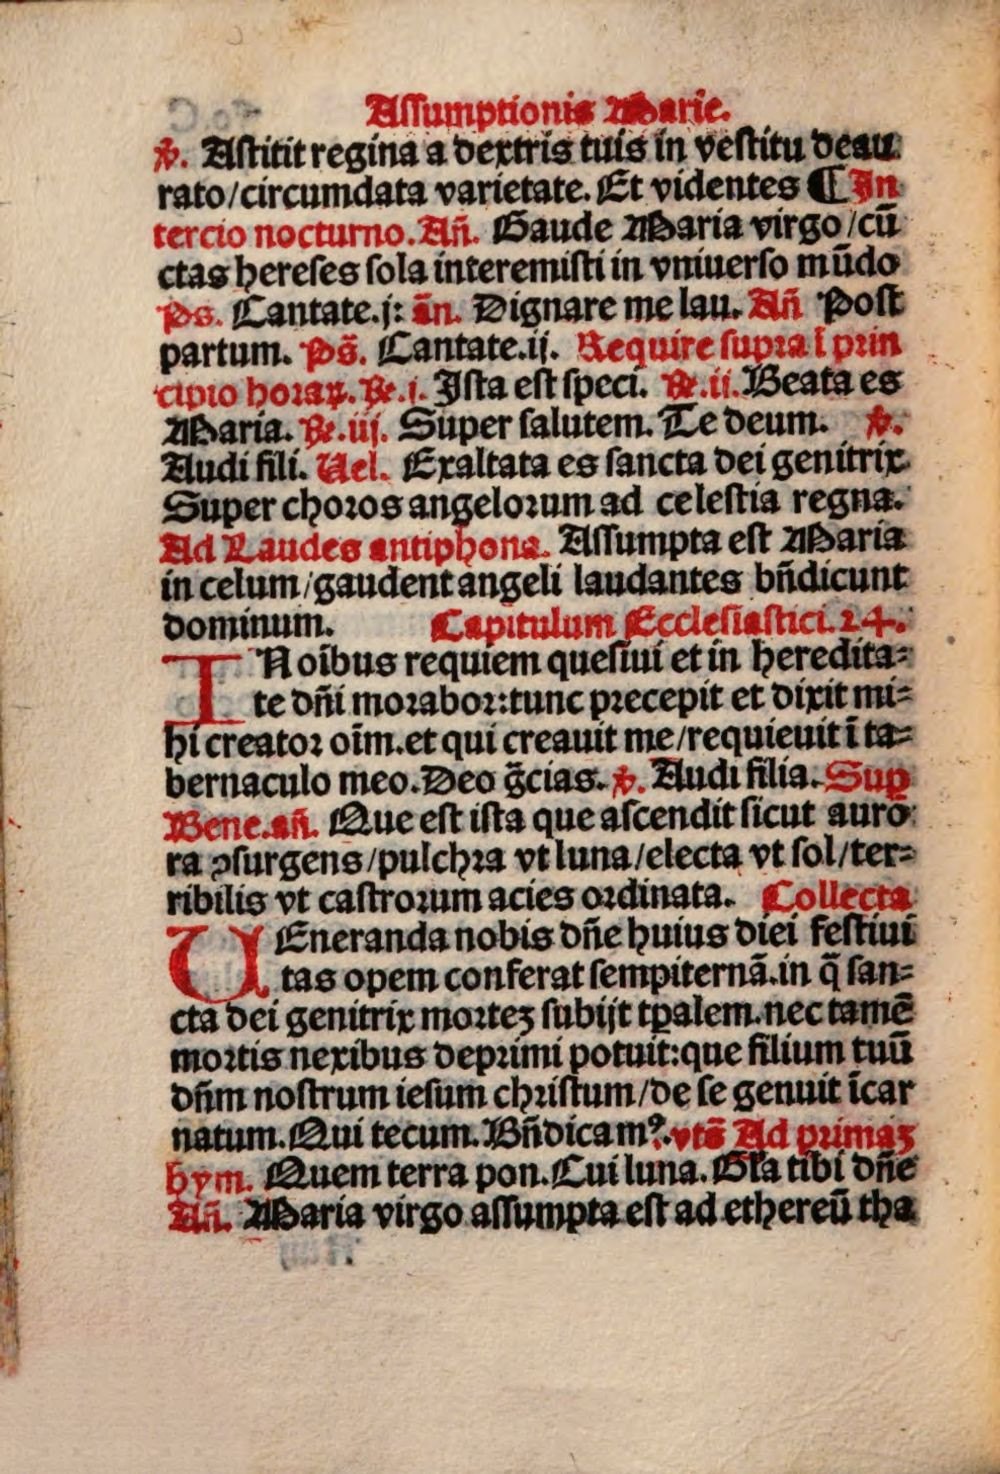 Assumptionis Marie.
℣. Astitit regina a dextris tuis in vestitu deau
rato/circumdata varietate. Et videntes ¶ In
tercio nocturno. Añ. Gaude Maria virgo/cū
ctas hereses sola interemisti in vniuerso mūdo
Ps. Cantate.j: ān. Dignare me lau. Añ Post
partum. Ps̄. Cantate.ij. Require supra ī prin
cipio horaꝝ. ℟.j. Ista est speci. ℟.ii. Beata es
Maria. ℟.iij. Super salutem. Te deum. ℣.
Audi fili. Uel. Exaltata es sancta dei genitrix
Super choros angelorum ad celestia regna.
Ad Laudes antiphona. Assumpta est Maria
in celum/gaudent angeli laudantes bn̄dicunt
dominum. Capitulum Ecclesiastici.24.
IN oībus requiem quesiui et in heredita⸗
te dn̄i morabor:tunc precepit et dixit mi⸗
hi creator oīm.et qui creauit me/requieuit ī ta⸗
bernaculo meo. Deo gr̄cias. ℣. Audi filia. Sup
Bene.añ. Que est ista que ascendit sicut auro
ra ꝯsurgens/pulchra vt luna/electa vt sol/ter⸗
ribilis vt castrorum acies ordinata. Collecta
VEneranda nobis dn̄e huius diei festiui
tas opem conferat sempiternā.in q̄ san⸗
cta dei genitrix morteꝫ subijt tꝑalem.nec tamē
mortis nexibus deprimi potuit:que filium tuū
dn̄m nostrum iesum christum/de se genuit īcar
natum. Qui tecum. Bn̄dicamꝰ.vts̄ Ad primaꝫ
hym. Quem terra pon. Cui luna. Gl̄a tibi dn̄e
Añ. Maria virgo assumpta est ad ethereū tha